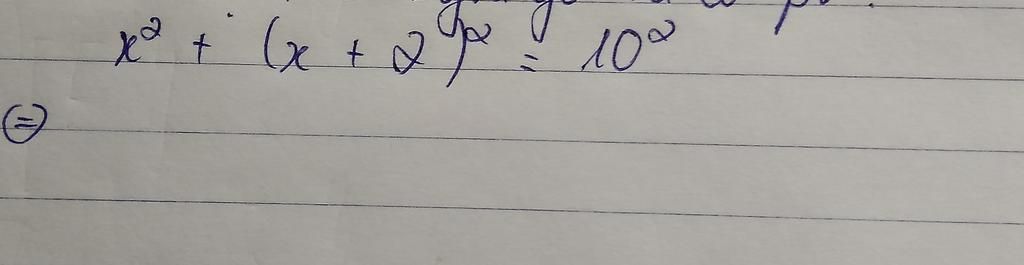 x² + (x + 2)² = 10²
⇔